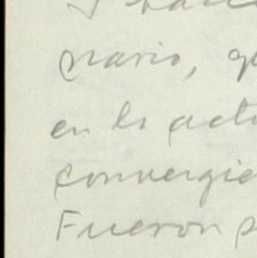 nario, q
en la actu
convergie
Fueron p